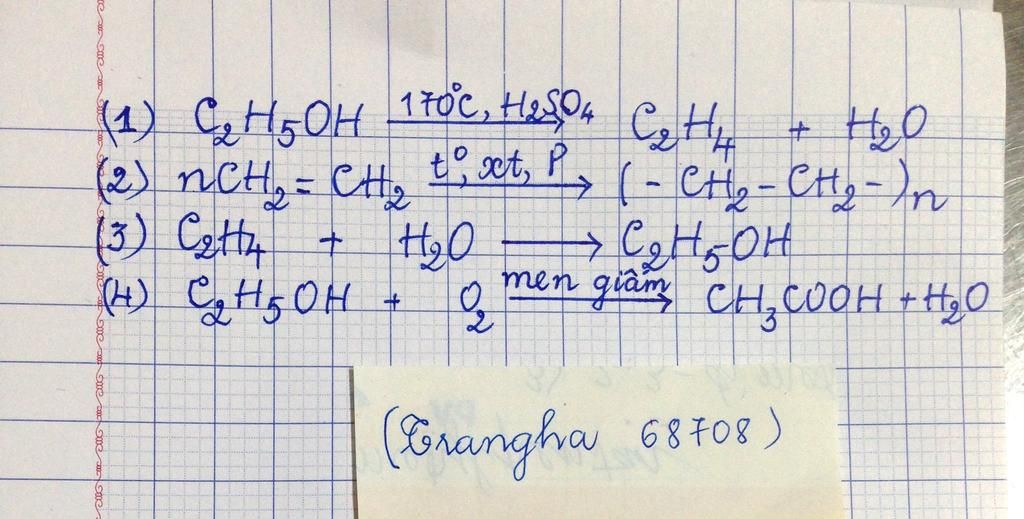 (1) C₂H₅OH 170°C, H₂SO₄ → C₂H₄ + H₂O
(2) nCH₂ = CH₂ t°, xt, P → (- CH₂ - CH₂ -)n
(3) C₂H₄ + H₂O → C₂H₅OH
(4) C₂H₅OH + O₂ men giấm → CH₃COOH + H₂O
(Trangha 68708)